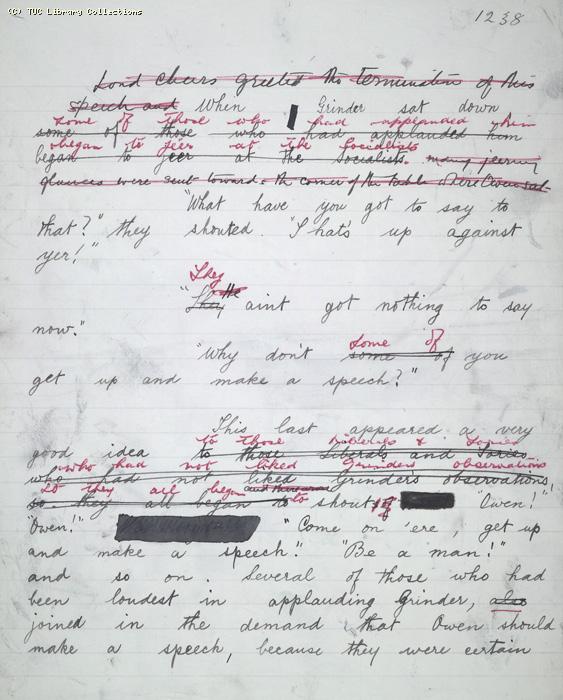 (C) TUC Library Collections
1238
Loud cheers greeted the termination of this
speech and When Grinder sat down
some of those who had applauded him
some of those who had applauded him
began to jeer at the Socialists
began to jeer at the Socialists. many jeering
glances were sent towards the corner of the table where Owen sat.
"What have you got to say to
that?" they shouted. "That's up against
yer!"
They
"They ain't got nothing to say
now."
some of
"Why don't some of you
get up and make a speech?"
This last appeared a very
to those Liberals & Tories
good idea to those Liberals and Tories
who had not liked Grinders observations
who had not liked Grinders observations,
so they all began
so they all began to to shout "Owen!"
"Owen!" "Come on 'ere, get up
and make a speech." "Be a man!"
and so on. Several of those who had
been loudest in applauding Grinder, also
joined in the demand that Owen should
make a speech, because they were certain